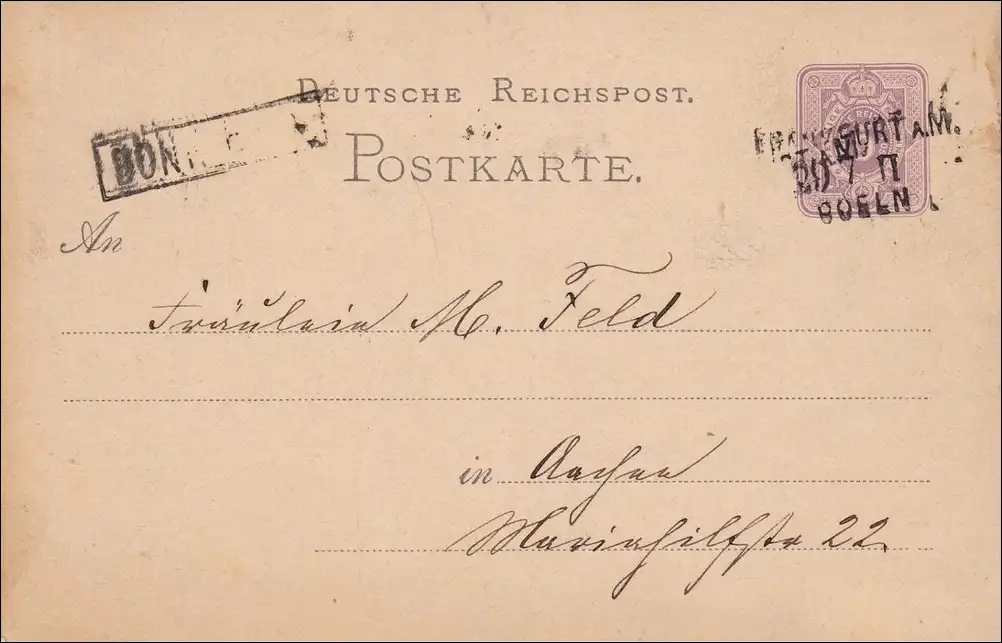 DEUTSCHE REICHSPOST.
POSTKARTE.
FRANKFURT A.M.
20 7 II
COELN
An
Fräulein M. Feld
in Aachen
Mariahilfstr 22.